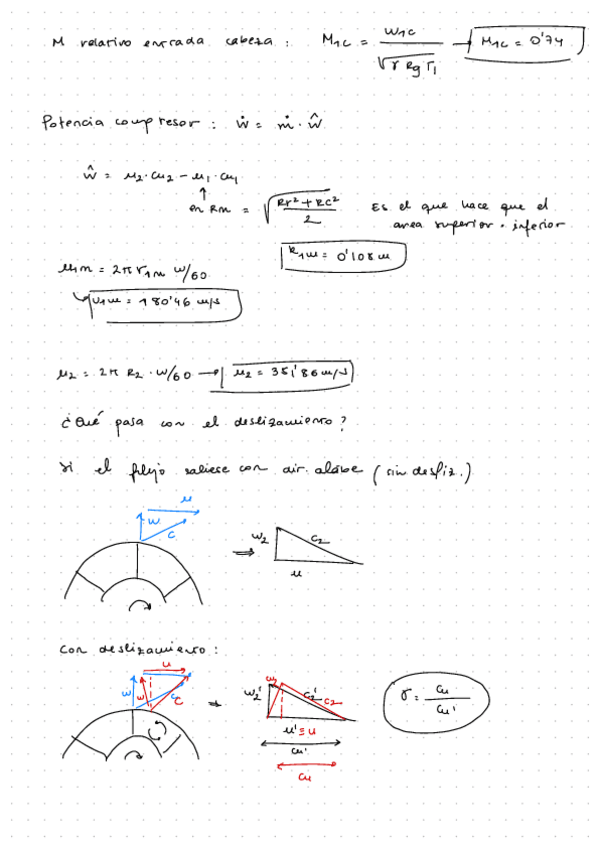 M relativo entrada cabeza : M1c = w1c / √(γ Rg T1) → M1c = 0'74
Potencia compresor : ẇ = ṁ · ŵ
ŵ = u2 · cu2 - u1 · cu1
en Rm = √((Rr² + Rc²) / 2) Es el que hace que el
area superior = inferior
R1m = 0'108 m
u1m = 2π r1m w/60
u1m = 180'46 m/s
u2 = 2π R2 · w/60 → u2 = 351'86 m/s
¿Qué pasa con el deslizamiento?
Si el flujo saliese con dir. alabe (sin desliz.)
u
w
c
w2
c2
u
Con deslizamiento :
u
w
w
c
c
w2
w2'
c2'
c2
u' ≡ u
cu'
cu
σ = cu / cu'